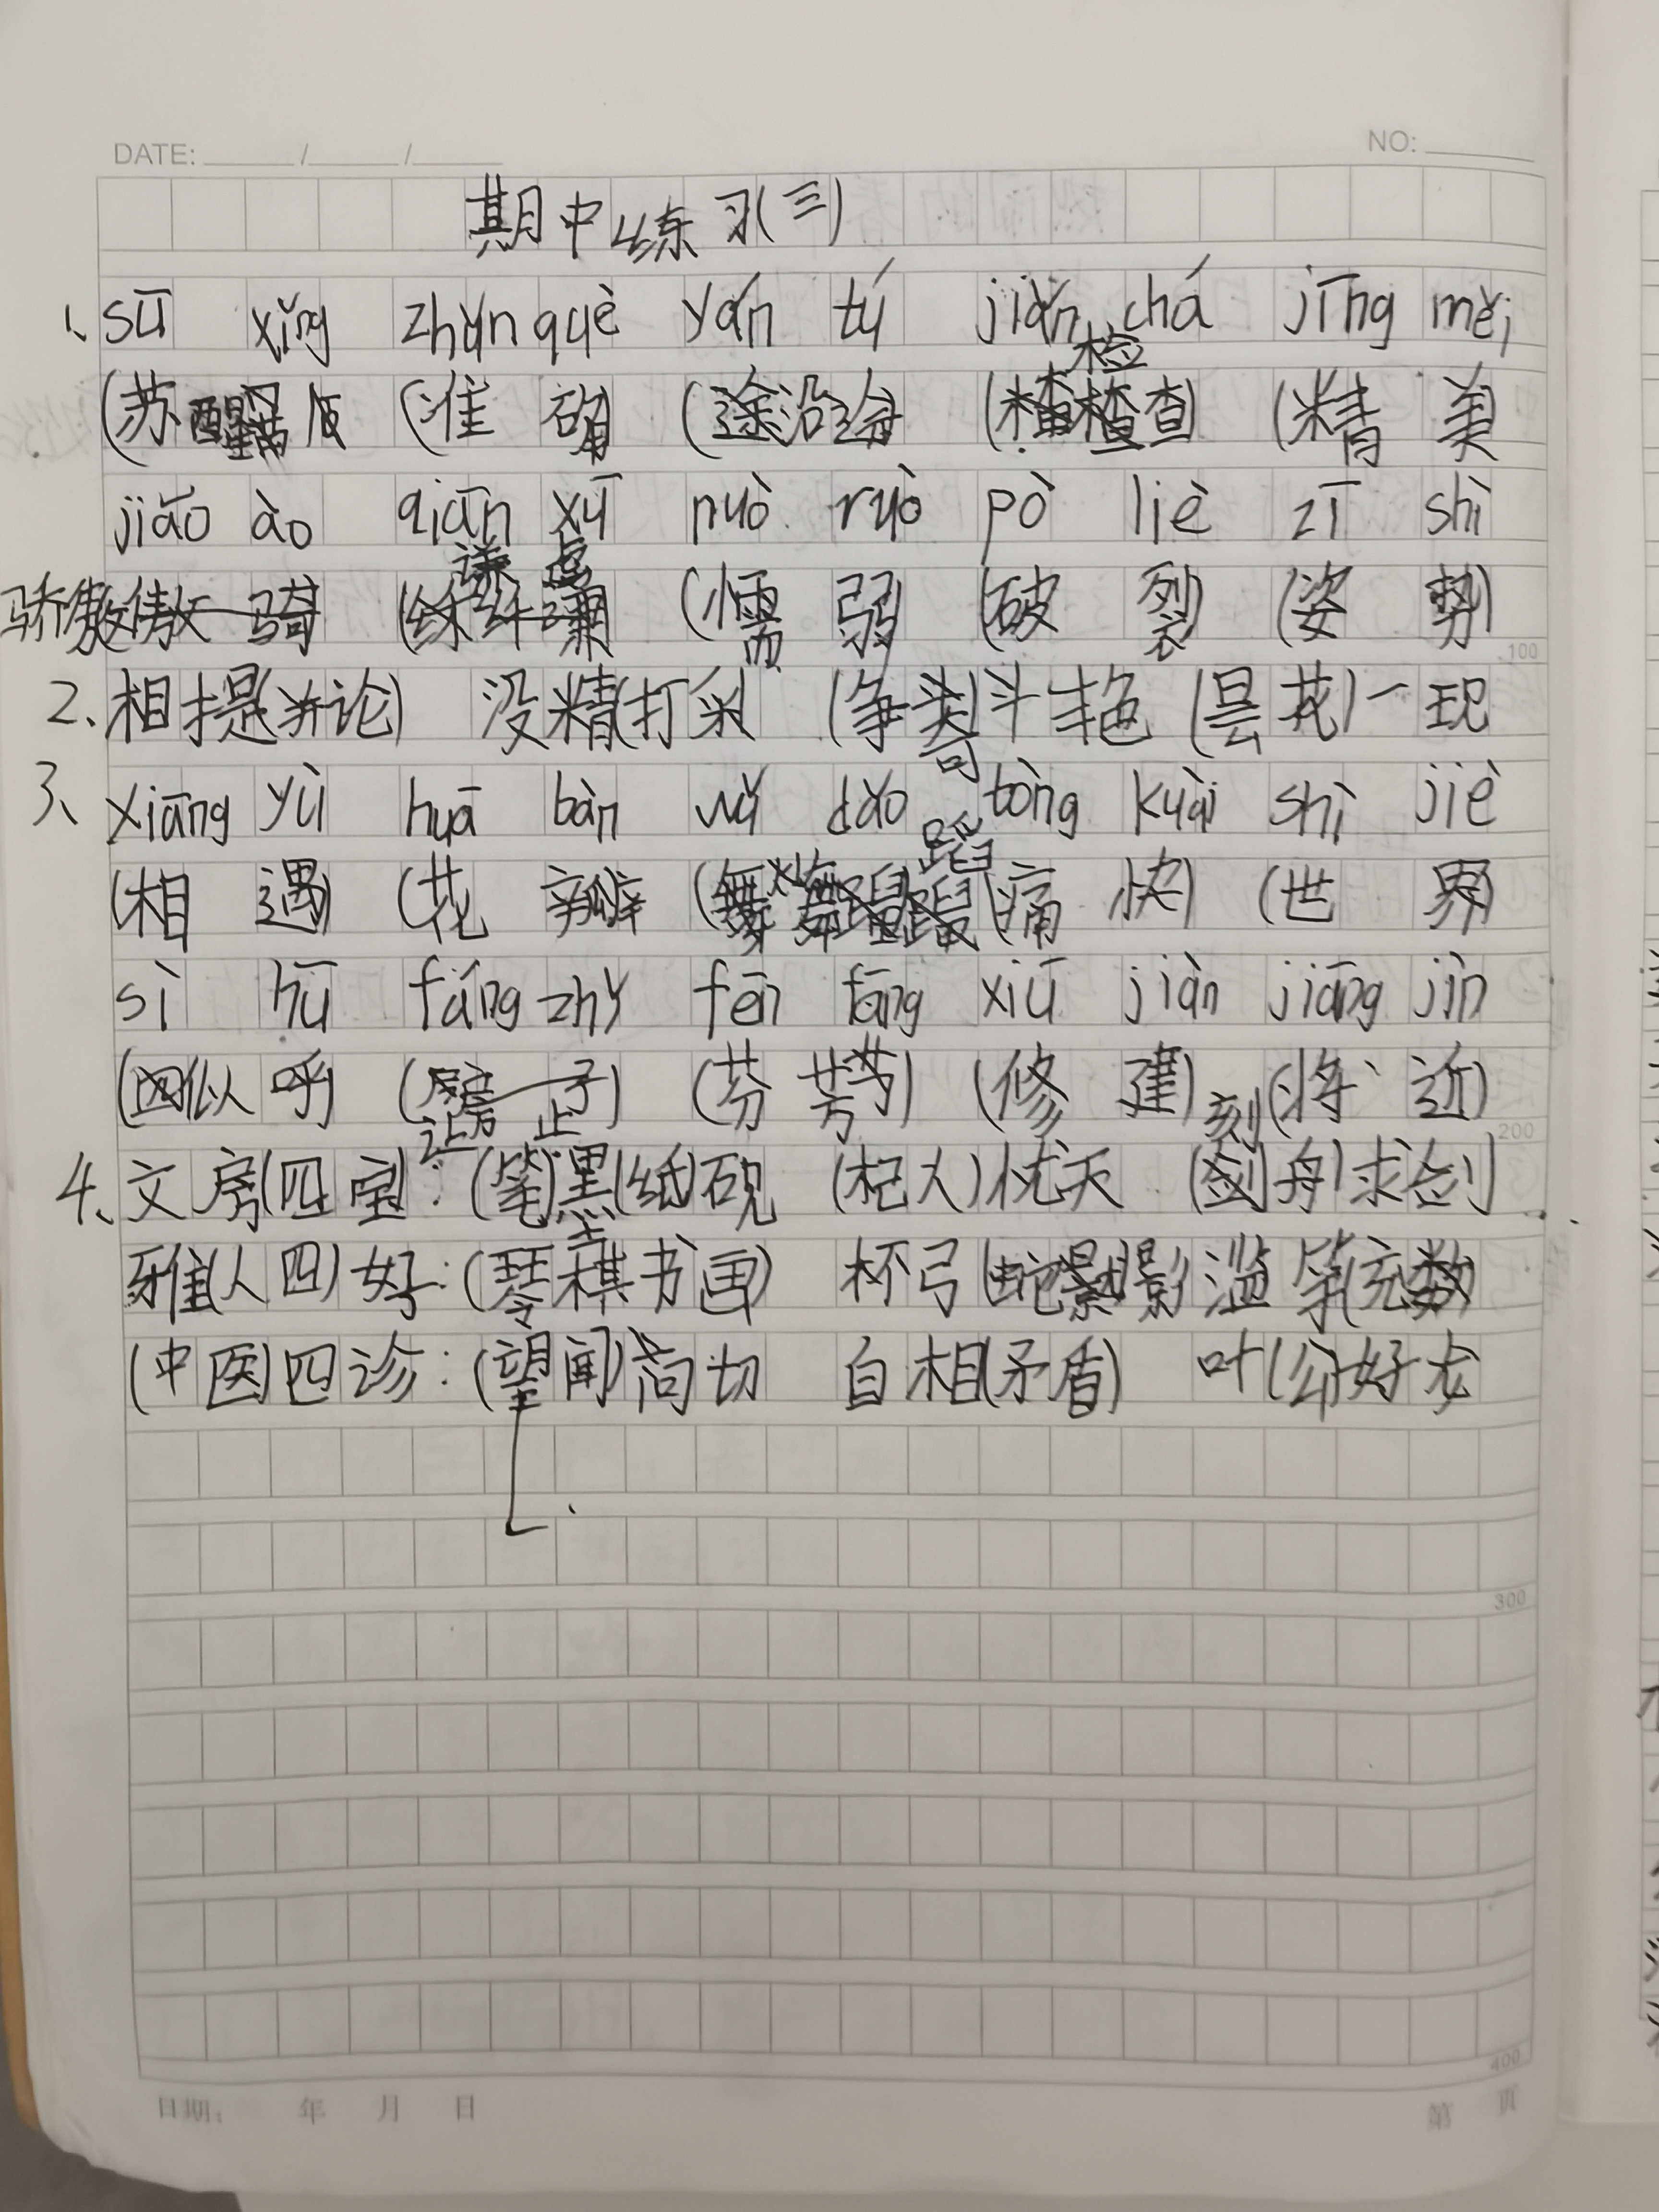 DATE: / /
NO:
期中练习(三)
1、sū xǐng zhǔn què yán tú jiǎn chá jīng měi
(苏醒 (准 确) (沿途 (检查) (精 美)
jiāo ào qiān xū nuò ruò pò liè zī shì
骄傲 (谦 虚 (懦 弱) (破 裂) (姿 势)
100
2、相提(并论) 没精(打采 (争奇)斗艳 (昙花)一现
3、xiāng yù huā bàn wǔ dǎo tòng kuài shì jiè
(相 遇) (花 瓣 (舞蹈 (痛 快) (世 界)
sì hū fáng zhǐ fēn fāng xiū jiàn jiāng jìn
(似 呼) (让 止 (芬 芳) (修 建) (将 近)
200
4、文房(四宝):(笔)墨(纸)砚 (杞人)忧天 (刻舟)求剑
雅(人四)好:(琴棋书画) 杯弓(蛇影 滥竽(充数)
(中医)四诊:(望闻)问切 自相(矛盾) 叶(公)好龙
300
400
日期: 年 月 日
第 页